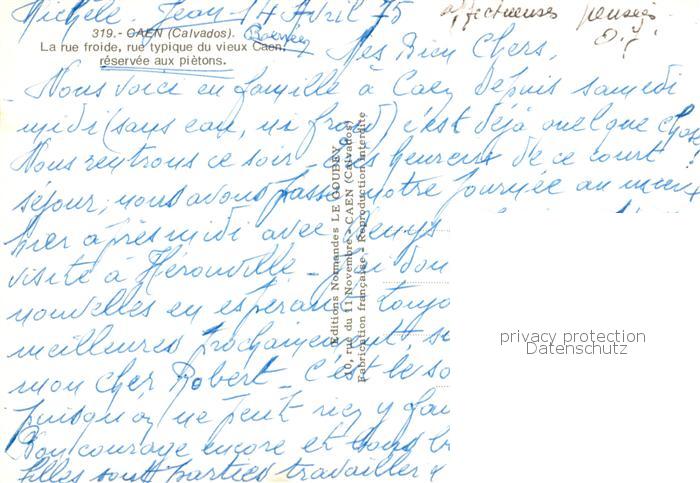 Michèle. Jean 14 Avril 75
affectueuses pensées
319.- CAEN (Calvados).
La rue froide, rue typique du vieux Caen,
réservée aux piètons.
Mes Bien Chers,
Nous voici en famille à Caen depuis samedi
midi (sans eau, ni froid) c'est déjà quelque chose
Nous rentrons ce soir - heureux de ce court
séjour, nous avons passé notre journée au mieux
hier après midi avec Denys
visite à Hérouville -
nouvelles en espérant
meilleures prochainement,
mon cher Robert - C'est le
puisqu'on ne peut rien y
Bon courage encore et
filles sont parties travailler
Editions Normandes LE GOUBEY
10, rue du 11 Novembre - CAEN (Calvados)
Fabrication française - Reproduction interdite
privacy protection
Datenschutz